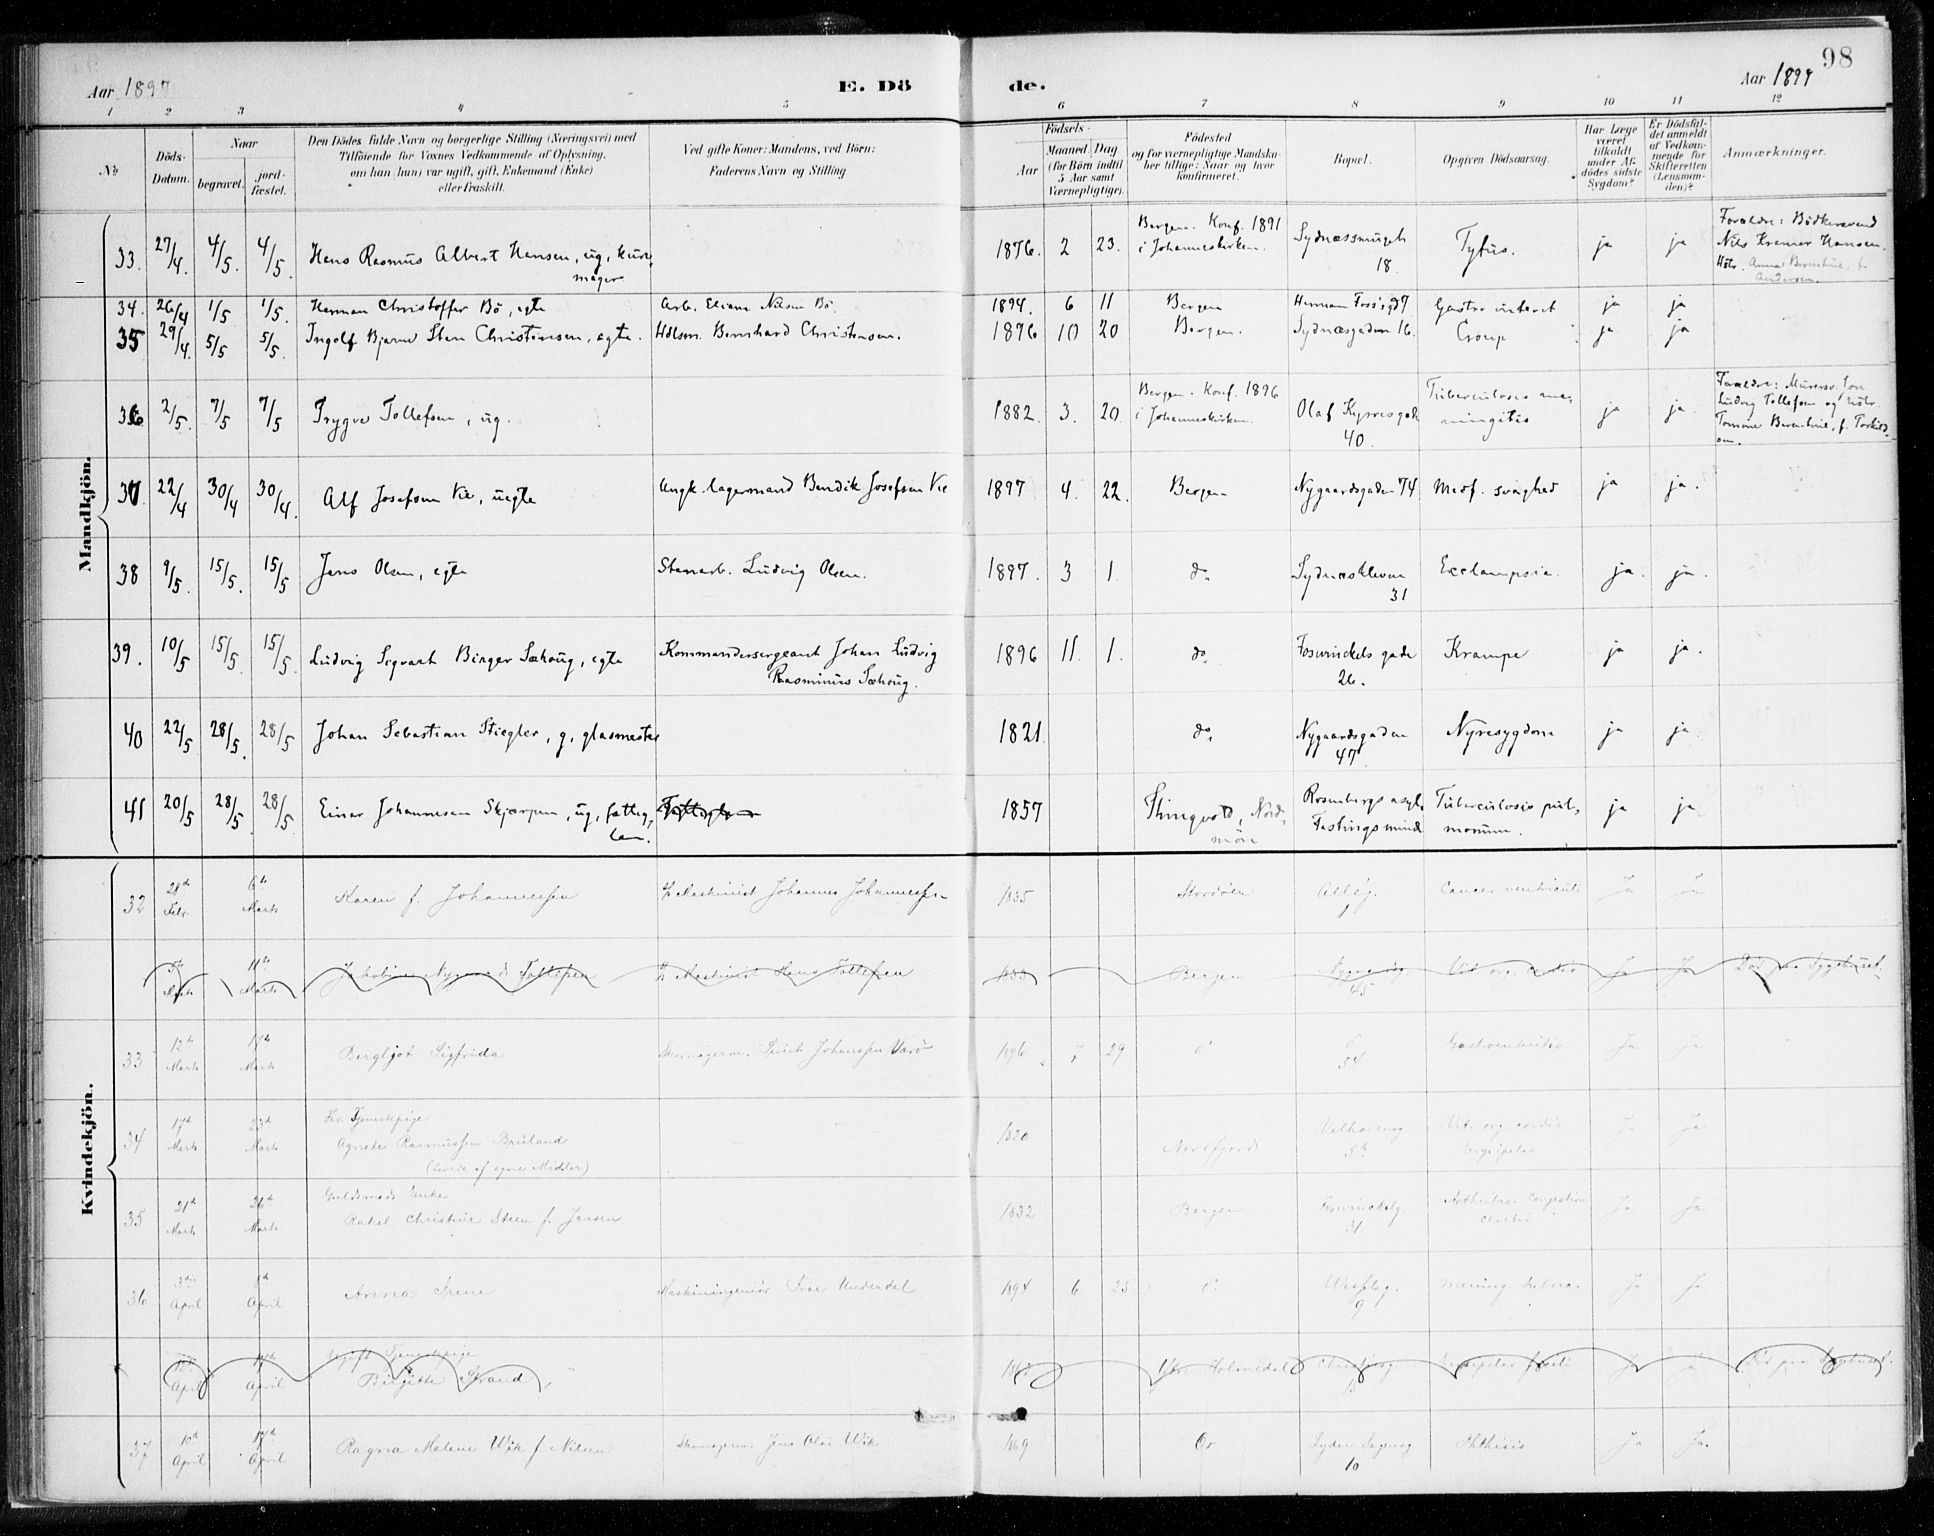 98
Aar 1897
E. Dö
de.
Aar 1897
1 2 3 4 5 6 7 8 9 10 11 12
No
Döds-Datum.
Naar
begravet.
jord-fæstet.
Den Dödes fulde Navn og borgerlige Stilling (Næringsvei) med
Tilföiende for Voxnes Vedkommende af Oplysning,
om han (hun) var ugift, gift, Enkemand (Enke)
eller fraskilt.
Ved gifte Koner: Mandens, ved Börn:
Faderens Navn og Stilling
Födsels-
Aar
Maaned
Dag
(for Börn indtil
5 Aar samt
Værnepligtige).
Födested
og for værnepligtige Mandska-
ber tillige: Naar og hvor
konfirmeret.
Bopæl.
Opgiven Dödsaarsag.
Har Læge
været
tilkaldt
under Af-
dödes sidste
Sygdom?
Er Dödsfal-
det anmeldt
af Vedkom-
mende for
Skifteretten
(Lensman-
den)?
Anmærkninger.
Mandkjön.
33. 27/4. 4/5. 4/5. Hans Rasmus Albert Hansen, ug, kur-
mager
1876. 2 23. Bergen. Konf. 1891
i Johanneskirken.
Sydnæssmuget
18.
Tyfus. ja ja
Forældre: Bödkersvend
Nils Kremer Hansen
Hstr. Anna Berntine, f.
Andersen
34. 26/4 1/5 1/5. Herman Christoffer Bö, egte
Arb. Eliam Nilsen Bö.
1894. 6 11 Bergen Herman Foss'sgd 7 Gastro interet ja ja
35 29/4. 5/5 5/5. Ingolf Bjarne Sten Christensen, egte.
Hdlsm. Bernhard Christensen.
1896 10 20 Bergen. Sydnæsgaden 16. Croup ja ja
36. 2/5. 7/5 7/5 Trygve Tollefsen, ug.
1882. 3. 20. Bergen. Konf. 1896
i Johanneskirken.
Olaf Kyrresgade
40.
Tuberculosis me-
ningitis
ja ja.
Forældre: Murersv.
Ludvig Tollefsen og Hstr.
Berentine, f. Torkild-
sen.
37. 22/4 30/4 30/4. Alf Josefsen Vie, uegte
Angk. lagermand Bendik Josefsen Vie
1897 4. 22. Bergen Nygaardsgaden 74 Medf. svaghed ja ja.
38 9/5. 15/5. 15/5 Jens Olsen, egte
Stenarb. Ludvig Olsen.
1897. 3 1. do. Sydnæskleven
31
Ecclampsia. ja. ja.
39. 10/5 15/5. 15/5. Ludvig Sigvart Birger Sæhoug, egte
Kommandersergeant Johan Ludvig
Rasminus Sæhoug.
1896 11. 1. do. Foswinckels gade
26.
Krampe ja ja.
40 22/5 28/5. 28/5 Johan Sebastian Stiegler, g, glasmester
1821. do. Nygaardsgaden
47
Nyresygdom ja ja.
41 20/5 28/5. 28/5. Einar Johannesen Skjærpen, ug, fattig-
lem.
1857 Thingvold, Nord-
möre
Rosenbergs asyl
Festningsminde
Tuberculosis pul-
monum.
ja ja.
Kvindekjön.
32 28de
Febr. 6te
Marts
Karen f. Johannessen
Maskinist Johannes Johannessen
1835 Stordöen Alleg.
1
Cancer ventriculi Ja Ja
5te
Marts 11te
Marts
Jakobine Nygaard Tollefsen
Maskinist Hans Tollefsen
1833 Bergen Nygaardsg
45
Vit. org. cordis Ja Ja Död paa Sygehuset.
33 12te
Marts 17te
Marts
Bergljot Sigfrida
Skomagerm. Johanssen Varö
1896 7 29 do do
54
Gastroenteritis Ja Ja
34 17de
Marts 23de
Marts
Fhv. Tjenestepige
Agnete Rasmussen Bruland
(levede af egne Midler)
1820 Nordfjord Welhavensg
Vit. org. cordis
Erysipelas
Ja Ja
35 21de
Marts 26de
Marts
Guldsmeds Enke
Rakel Christine Steen f. Jansen
1832 Bergen Foswinckelsg.
31
Arthritis. Congestion
cerebri
Ja Ja
36 3die
April 8de
April
Anna Irene
Maskiningeniör Ivar Underdal
1894 6 25 do Wesselsg.
9
mening. tuberc. Ja Ja
10de
April 17de
April
Ugift Tjenestepige
Birgitte Strand
Ytre Holmedal Christiesg
15
Erysipelas faciei Ja Ja Död paa Sygehuset.
37 10de
April 17de
April
Ragna Malene Wik f. Nilsen
Skomagerm. Jens Olai Wik
1869 do Lyder Sagensg
10
Phthisis Ja Ja.